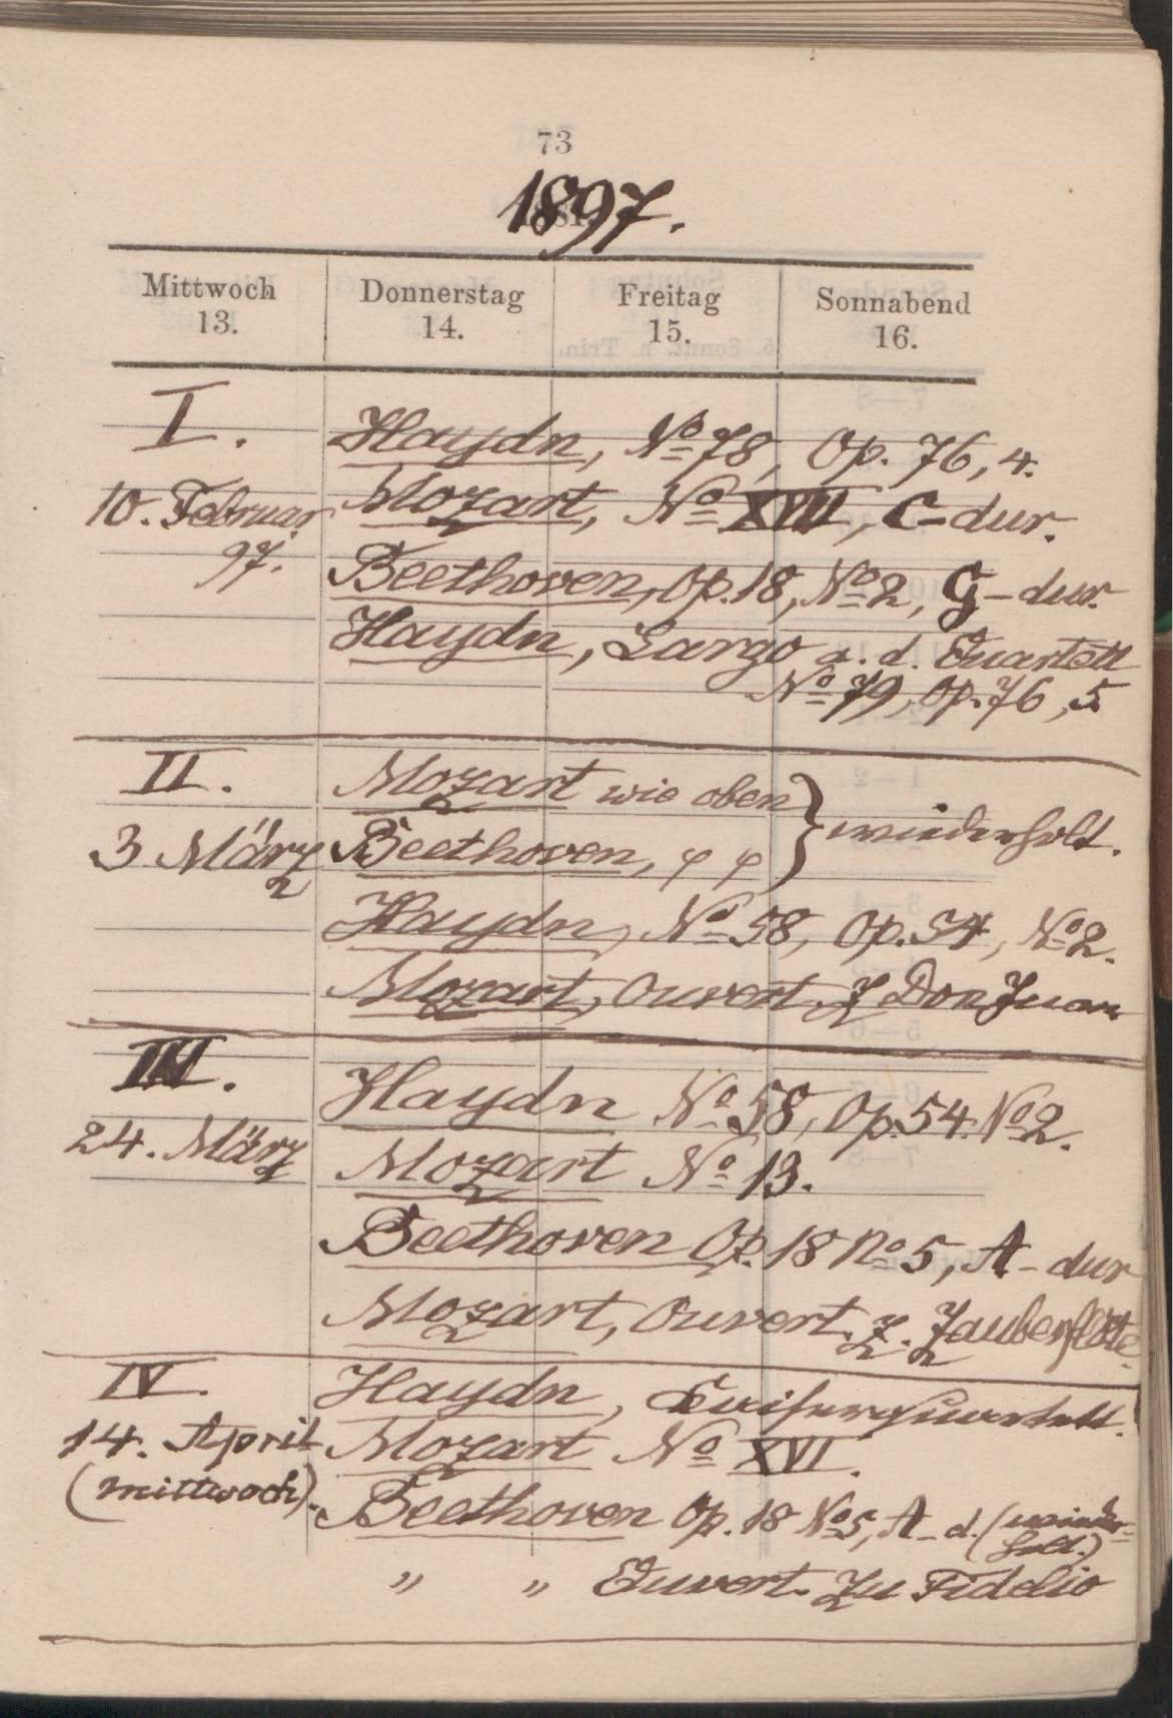 73
1897.
Mittwoch 13. Donnerstag 14. Freitag 15. Sonnabend 16.
I. Haydn, No 78, Op. 76, 4.
10. Februar Mozart, No XVII, C-dur.
97. Beethoven, Op. 18, No 2, G-dur.
Haydn, Largo a. d. Quartett
No 79, Op. 76, 5
II. Mozart wie oben } wiederholt.
3 März Beethoven, " "
Haydn, No 58, Op. 54, No 2.
Mozart, Ouvert. z Don Juan
III. Haydn No 58, Op. 54. No 2.
24. März Mozart No 13.
Beethoven Op. 18 No 5, A-dur
Mozart, Ouvert. z. Zauberflöte.
IV. Haydn, Kaiserquartett.
14. April Mozart No XVI.
(Mittwoch). Beethoven Op. 18 No 5, A-d. (wieder-
holt.)
" " Ouvert. zu Fidelio